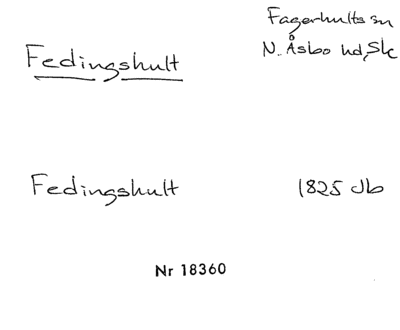 Fagerhults sn
Fedingshult
N. Åsbo hd, Sk
Fedingshult 1825 Jb
Nr 18360